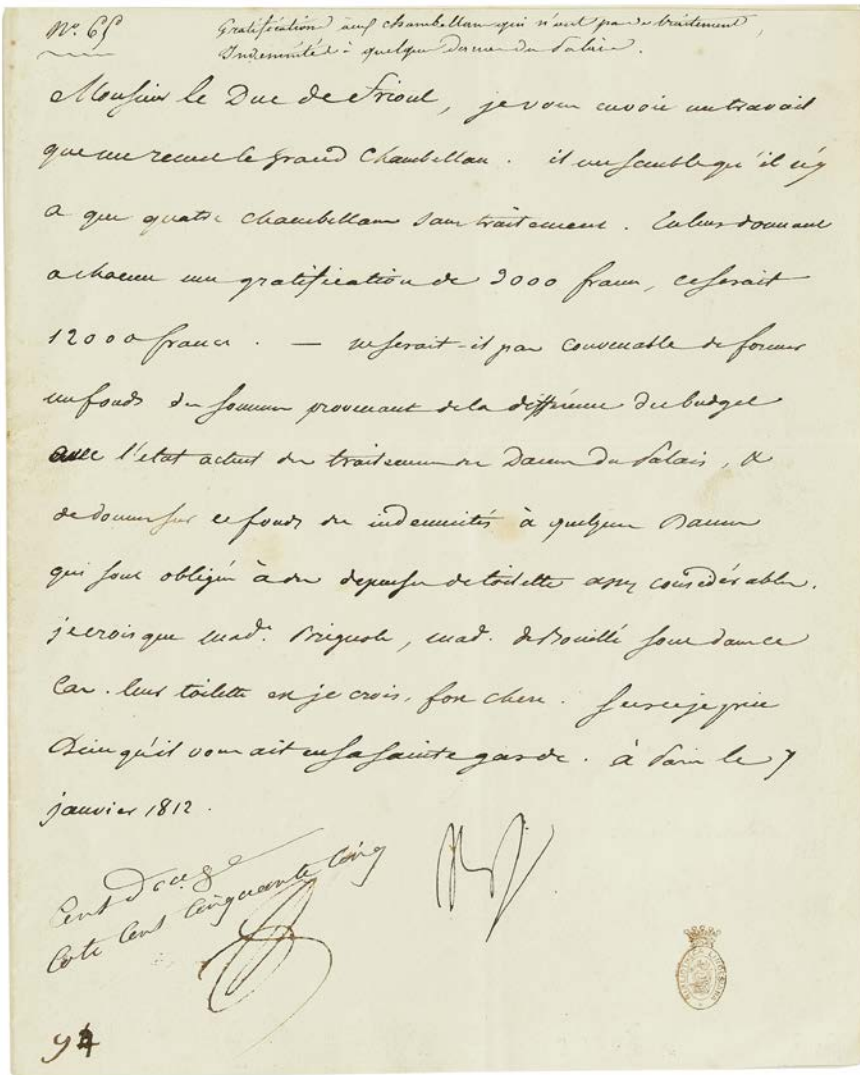 No. 65
Gratification aux chambellans qui n'ont pas de traitement,
Indemnités à quelques dames du Palais.
Monsieur le Duc de Frioul, je vous envoie un travail
que me remet le grand Chambellan. il me semble qu'il n'y
a que quatre chambellans sans traitement. En leur donnant
a chacun une gratification de 3000 francs, ce serait
12000 francs. — ne serait-il pas convenable de former
un fonds des sommes provenant de la différence du budget
avec l'etat actuel du traitement des Dames du Palais, &
de donner sur ce fonds des indemnités à quelques Dames
qui sont obligées à des depenses de toilette assez considérables.
je crois que mad.e Brignole, mad. de Bouillé sont dans ce
Cas. leur toilette est je crois, fort chere. Sur ce je prie
Dieu qu'il vous ait en sa sainte garde. à Paris le 7
janvier 1812.
Np
Cent
Cote Cent Cinquante Cinq
94